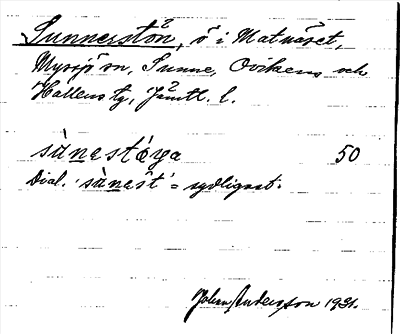 Sunnerstön, ö i Matnäset,
Myssjö sn, Sunne, Ovikens och
Hallens tg, Jämtl. l.
sùnestöya 50
Dial. 'sùnest' = sydligast.
Johan Anderzon 1931.